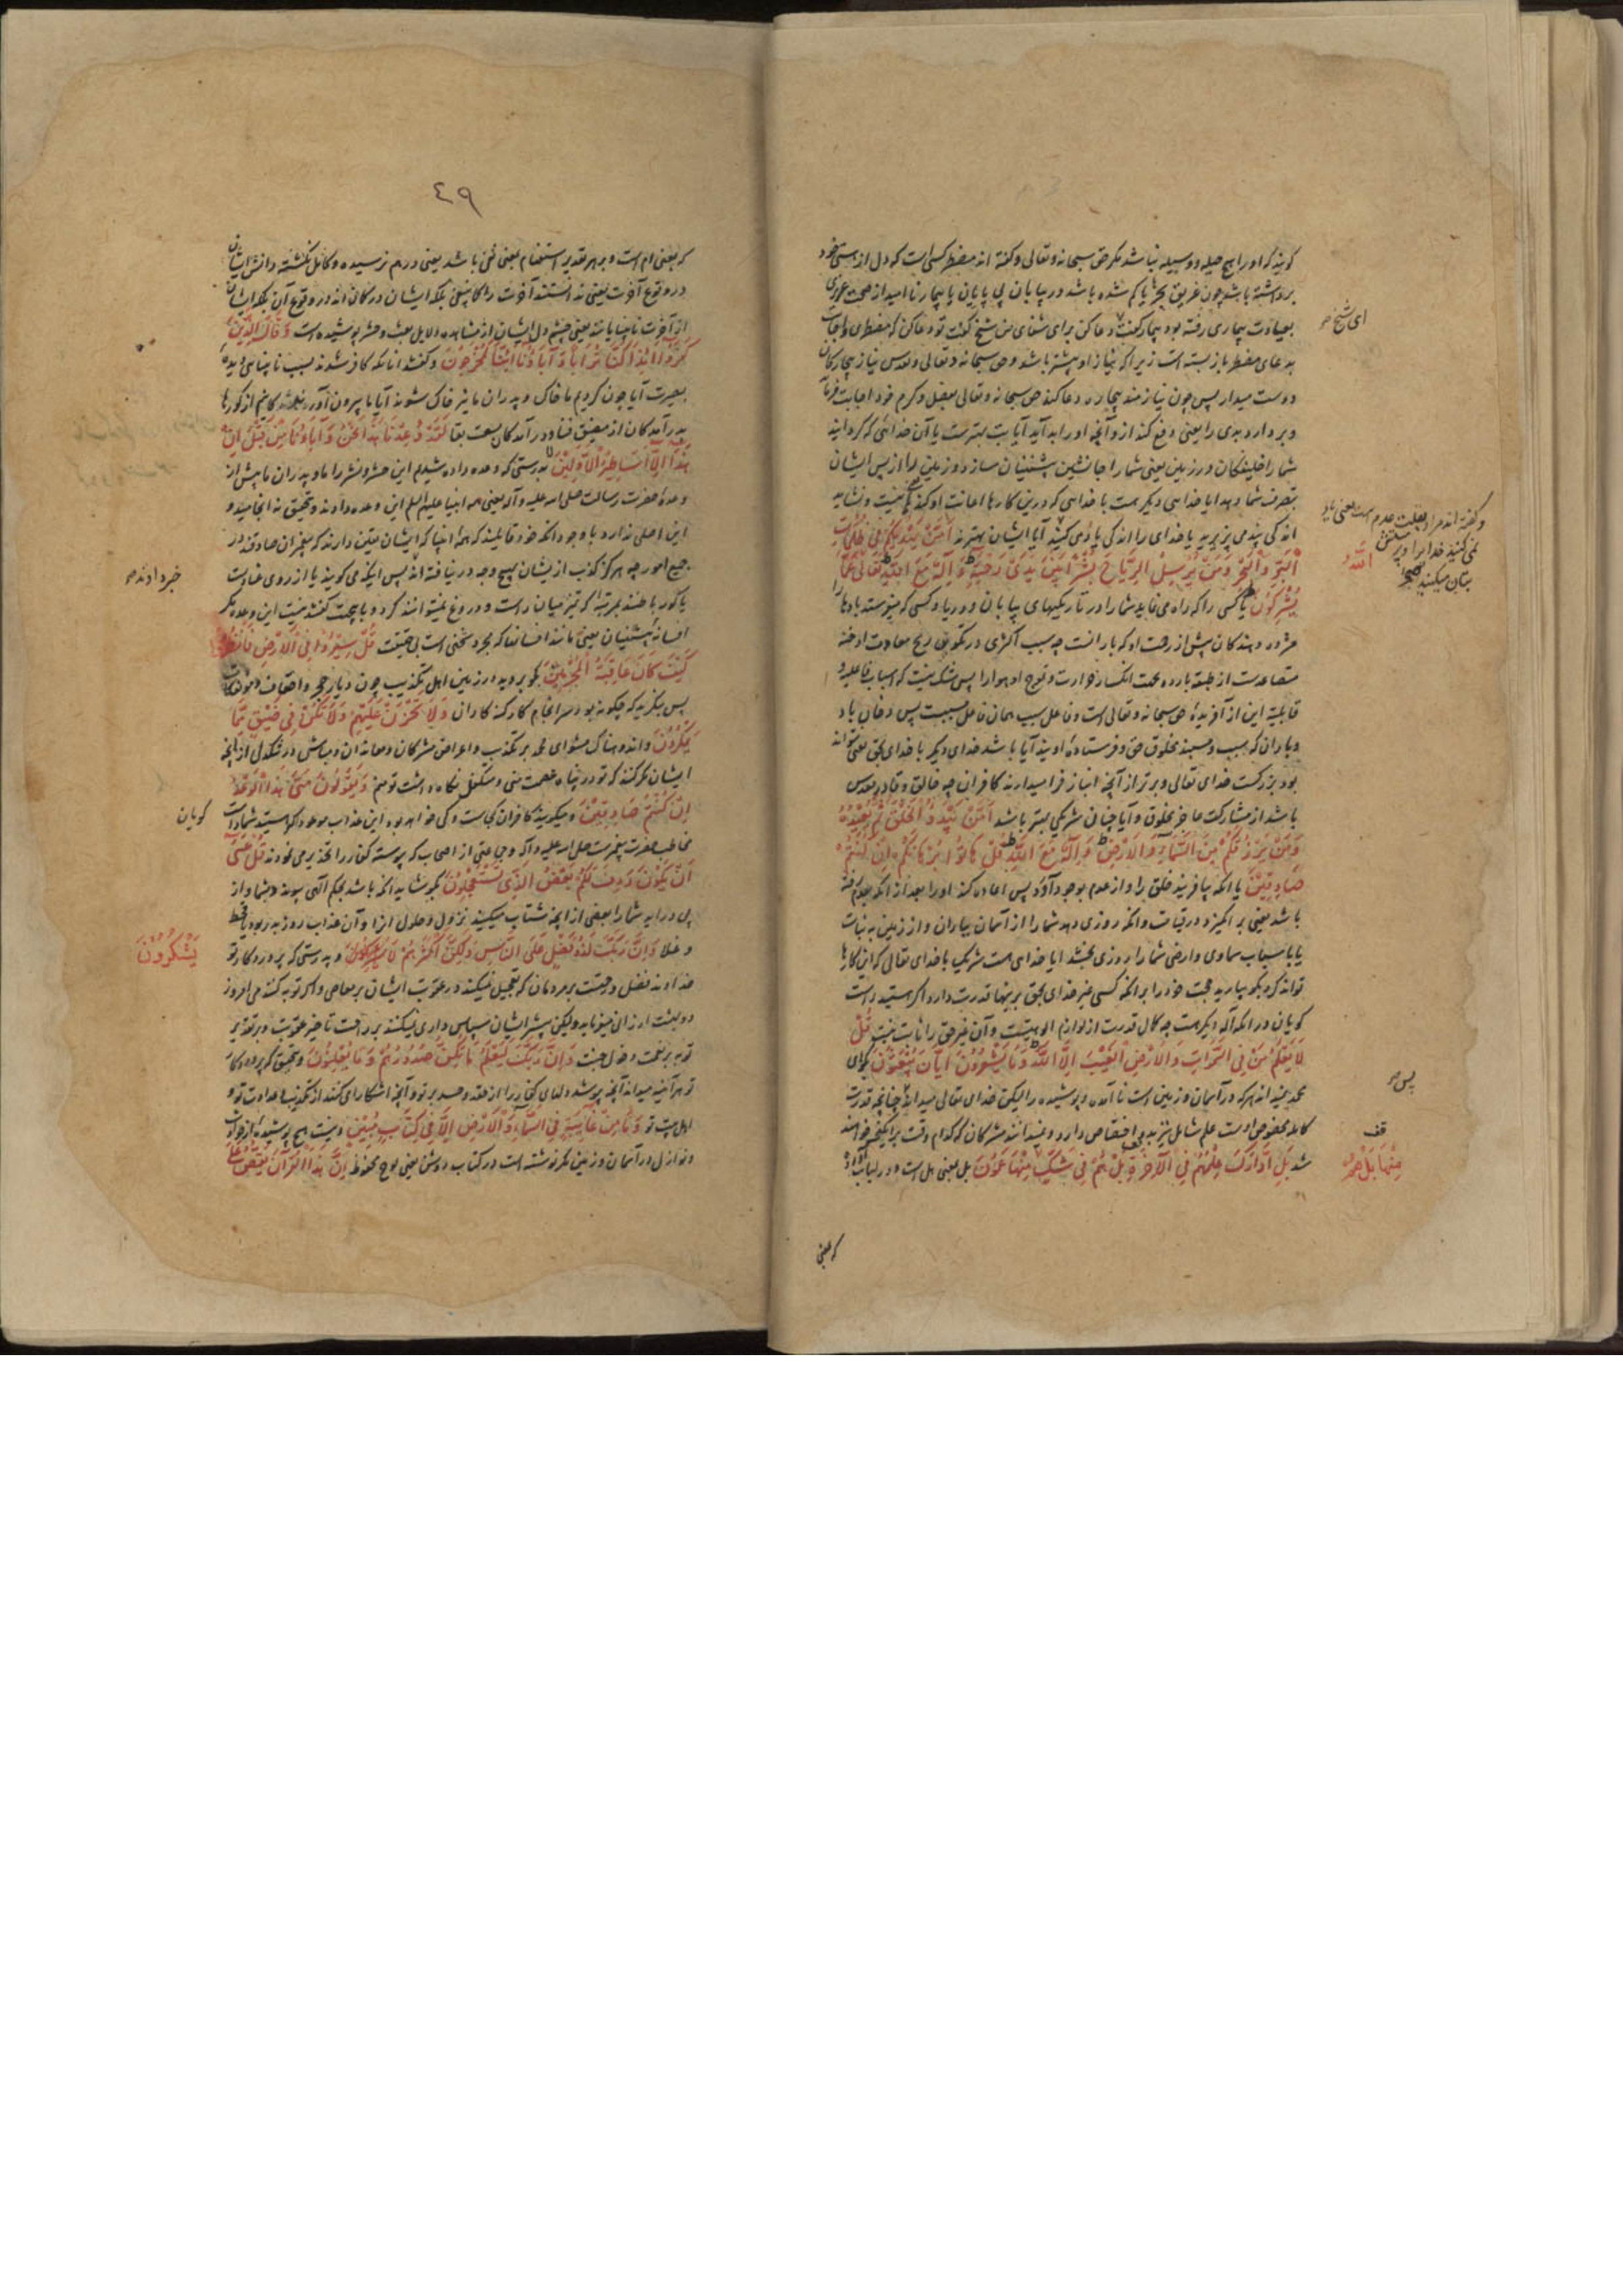 گویند که او را هیچ حیله و وسیله نباشد مگر حق سبحانه و تعالی و گفته اند مضطر کسی است که دل از هستی خود
برداشته باشد چون غریق بحر یا گم شده باشد در بیابان بی پایان یا بیمار نا امید از صحت عزیزی
بعیادت بیماری رفته بود بیمار گفت دعا کن برای شفای من شیخ گفت تو دعا کن که مضطری و اجابت
ای شیخ
بدعای مضطر باز بسته است زیرا که نیاز او بیشتر باشد و حق سبحانه و تعالی و تقدس نیاز بیچارگان
دوست میدارد پس چون نیازمند بیچاره دعا کند حق سبحانه و تعالی بفضل و کرم خود اجابت فرماید
و بردارد بدی را یعنی دفع کند از و آنچه او را بد آید آیا بت بهتر است یا آن خدائی که گردانید
شما را خلیفگان در زمین یعنی شما را جانشین پیشینیان سازد و زمین را از پس ایشان
بتصرف شما دهد ایا خدایی دیگر هست با خدایی که درین کارها اعانت او کند نیست و نشاید
اندکی پند می پذیرید یا خدای را اندکی یاد می کنید آیا ایشان بهترند أَمَّنْ يَهْدِيكُمْ فِي ظُلُمَاتِ
و گفته اند مراد بقلت عدم است یعنی یاد
نمی کنید خدا را و پرستش
بتان میکنید
الْبَرِّ وَالْبَحْرِ وَمَنْ يُرْسِلُ الرِّيَاحَ بُشْرًا بَيْنَ يَدَيْ رَحْمَتِهِ ءَإِلَهٌ مَعَ اللَّهِ تَعَالَى عَمَّا
اللَّهُ
يُشْرِكُونَ یا کسی را که راه می نماید شما را در تاریکیهای بیابان و دریا و کسی که میفرستد بادها را
مژده دهندگان پیش از رحمت او که بارانست چه سبب اکثری در تکون ریح معاودت ادخنه
متصاعدست از طبقه بارده بجهت انکسار حرارت و تموج او هوا را پس شک نیست که اسباب فاعلیه و
قابلیه این از آفریده حق سبحانه و تعالی است و فاعل سبب همان فاعل مسبب است پس دخان باد
و باران که سبب و مسببند مخلوق حق و فرستاده اویند آیا باشد خدای دیگر با خدای بحق یعنی تواند
بود بزرگست خدای تعالی و برتر از آنچه انباز فرا میدارند کافران چه خالق و قادر مقدس
باشد از مشارکت عاجز مخلوق و آیا چنان شریکی بهتر باشد أَمَّنْ يَبْدَؤُا الْخَلْقَ ثُمَّ يُعِيدُهُ
وَمَنْ يَرْزُقُكُمْ مِنَ السَّمَاءِ وَالْأَرْضِ ءَإِلَهٌ مَعَ اللَّهِ قُلْ هَاتُوا بُرْهَانَكُمْ إِنْ كُنْتُمْ
صَادِقِينَ یا انکه بیافریند خلق را و از عدم بوجود آورد پس اعاده کند او را بعد از انکه بعدم رفته
باشد یعنی برانگیزد در قیامت و انکه روزی دهد شما را از آسمان بباران و از زمین به نبات
یا باسباب سماوی و ارضی شما را روزی بخشد ایا خدای هست شریک با خدای تعالی که این کارها
تواند کرد بگو بیارید حجت خود را بر انکه کسی غیر خدای بحق برینها قدرت دارد اگر هستید راست
گویان در انکه اله دیگر هست چه کمال قدرت از لوازم الوهیتست و آن غیر حق را ثابت نیست قُلْ
لَا يَعْلَمُ مَنْ فِي السَّمَوَاتِ وَالْأَرْضِ الْغَيْبَ إِلَّا اللَّهُ وَمَا يَشْعُرُونَ أَيَّانَ يُبْعَثُونَ بگو ای
محمد نمیداند هر که در آسمان و زمین است نا آمده و پوشیده را لیکن خدای تعالی میداند چنانچه قدرت
پس
کامله مخصوص اوست علم شامل نیز بدو اختصاص دارد و نمیدانند مشرکان که کدام وقت برانگیخته خواهند
قف
شد بَلِ ادَّارَكَ عِلْمُهُمْ فِي الْآخِرَةِ بَلْ هُمْ فِي شَكٍّ مِنْهَا عَمُونَ بل بمعنی هل است و در لباب آورده
مِنْهَا بَلْ هُمْ
که بمعنی
٤٩
که بمعنی ام است و بهر تقدیر استفهام بمعنی نفی باشد یعنی در هم نرسیده و کامل نگشته دانش ایشان
در وقوع آخرت یعنی ندانستند آخرت را کما ینبغی بلکه ایشان در گمان اند در وقوع آن بلکه ایشان
از آخرت نابینایانند یعنی چشم دل ایشان از مشاهده دلایل بعث و حشر پوشیده است وَقَالَ الَّذِينَ
كَفَرُوا أَئِذَا كُنَّا تُرَابًا وَآبَاؤُنَا أَئِنَّا لَمُخْرَجُونَ و گفتند انانکه کافر شدند بسبب نابینائی دیده
بصیرت آیا چون گردیم ما خاک و پدران ما نیز خاک شوند آیا ما بیرون آورده شدگانیم از گورها
بدر آمدگان از مضیق فنا و در آمدگان بسعت بقا لَقَدْ وُعِدْنَا هَذَا نَحْنُ وَآبَاؤُنَا مِنْ قَبْلُ إِنْ
هَذَا إِلَّا أَسَاطِيرُ الْأَوَّلِينَ بدرستی که وعده داده شدیم این حشر و نشر را ما و پدران ما پیش از
وعده حضرت رسالت صلی الله علیه و آله یعنی همه انبیا علیهم السلام این وعده دادند و تحقیق نه انجامید و
این اصلی ندارد با وجود انکه خود قایلند که همه انبیا که ایشان یقین دارند که مخبران صادقند در
جمیع امور چه هرگز کذب از یشان بهیچ وجه در نیافته اند پس اینکه می گویند یا از روی عنایت
خبر دادند
یا کور باطنند بمرتبه که تمیز میان راست و دروغ نمیتوانند کرد و با بجهت گفتند نیست این وعده مگر
افسانه پیشینیان یعنی مانند افسانها که بجرد سخنی است بی حقیقت قُلْ سِيرُوا فِي الْأَرْضِ فَانْظُرُوا
كَيْفَ كَانَ عَاقِبَةُ الْمُجْرِمِينَ بگو بروید در زمین اهل تکذیب چون دیار حجر و احقاف و مؤتفکات
پس بنگرید که چگونه بود سرانجام کار گنه کاران وَلَا تَحْزَنْ عَلَيْهِمْ وَلَا تَكُنْ فِي ضَيْقٍ مِمَّا
يَمْكُرُونَ و اندوهناک مشو ای محمد بر تکذیب و اعراض مشرکان و معاندان و مباش در تنگدلی از آنچه
ایشان مکر کنند که تو در پناه عصمت منی و متکفل نگاه داشت تو منم وَيَقُولُونَ مَتَى هَذَا الْوَعْدُ
إِنْ كُنْتُمْ صَادِقِينَ و میگویند کافران کجاست و کی خواهد بود این عذاب موعود اگر هستید شما راست
گویان
مخاطب حضرت پیغمبرست صلی الله علیه و آله و جمعی از اصحاب که پیوسته کفار را تحذیر می نمودند قُلْ عَسَى
أَنْ يَكُونَ رَدِفَ لَكُمْ بَعْضُ الَّذِي تَسْتَعْجِلُونَ بگو شاید انکه باشد بحکم الهی پیوند بشما و از
پی در اید شما را بعضی از انچه شتاب میکنید نزول و حلول انرا و آن عذاب روز بدر بود یا قحط
و غلا وَإِنَّ رَبَّكَ لَذُو فَضْلٍ عَلَى النَّاسِ وَلَكِنَّ أَكْثَرَهُمْ لَا و بدرستی که پروردگار تو
يَشْكُرُونَ
خداوند فضل و رحمتست بر مردمان که تعجیل نمیکند در عقوبت ایشان بر معاصی و اگر توبه کنند می آمرزد
دولت ارزانی مینماید ولیکن بیشتر ایشان سپاس داری نمیکنند بر راحت تاخیر عقوبت و بر تقدیر
توبه بر نعمت دخول جنت وَإِنَّ رَبَّكَ لَيَعْلَمُ مَا تُكِنُّ صُدُورُهُمْ وَمَا يُعْلِنُونَ و بتحقیق که پروردگار
تو هر آینه میداند آنچه پوشد دلهای کفار را از حقد و حسد بر تو و آنچه اشکارا می کنند از تکذیب و عداوت تو و
اهل بیت تو وَمَا مِنْ غَائِبَةٍ فِي السَّمَاءِ وَالْأَرْضِ إِلَّا فِي كِتَابٍ مُبِينٍ و نیست هیچ پوشیده از حوادث
و نوازل در آسمان و زمین مگر نوشته است در کتاب روشن یعنی لوح محفوظ إِنَّ هَذَا الْقُرْآنَ يَقُصُّ عَلَى